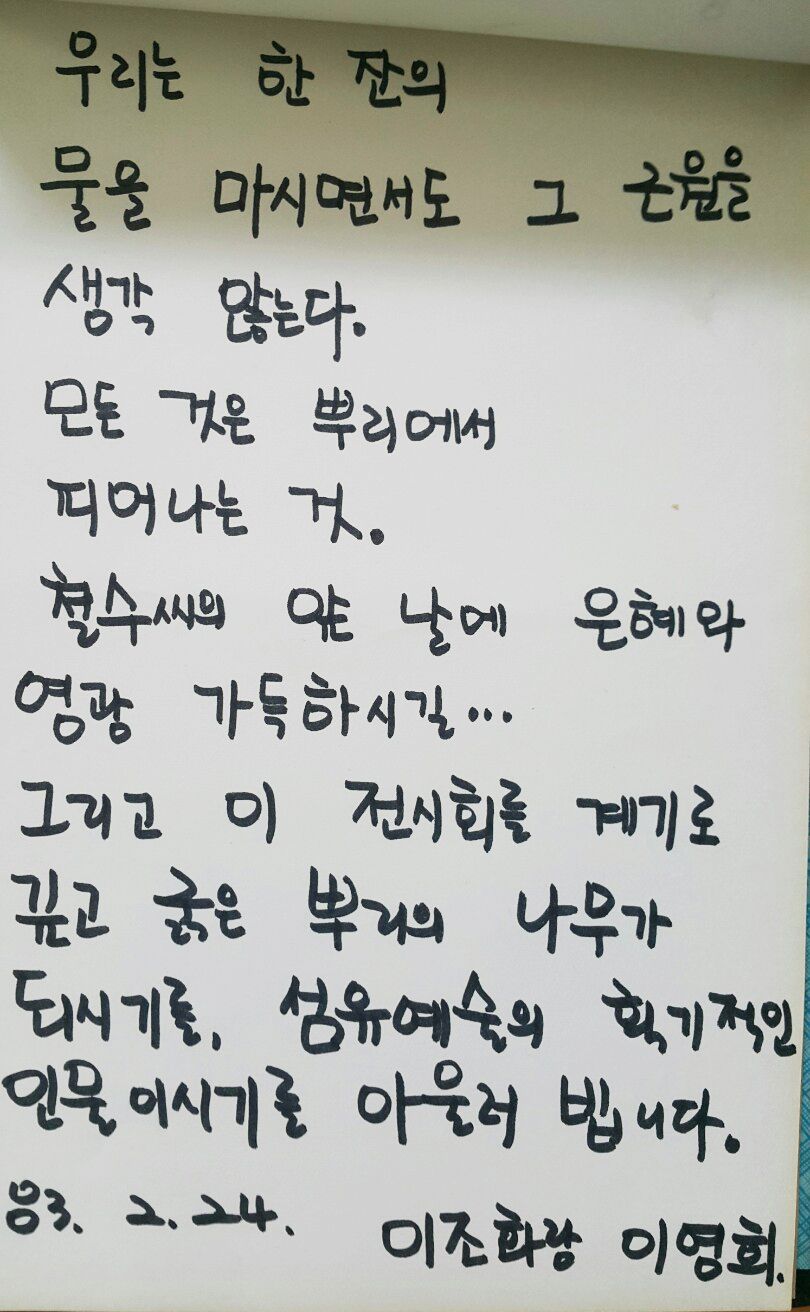 우리는 한 잔의
물을 마시면서도 그 근원을
생각 않는다.
모든 것은 뿌리에서
피어나는 것.
철수씨의 앞 날에 은혜와
영광 가득하시길...
그리고 이 전시회를 계기로
깊고 굵은 뿌리의 나무가
되시기를, 섬유예술의 획기적인
인물이시기를 아울러 빕니다.
83. 2. 24. 이조화랑 이영희.